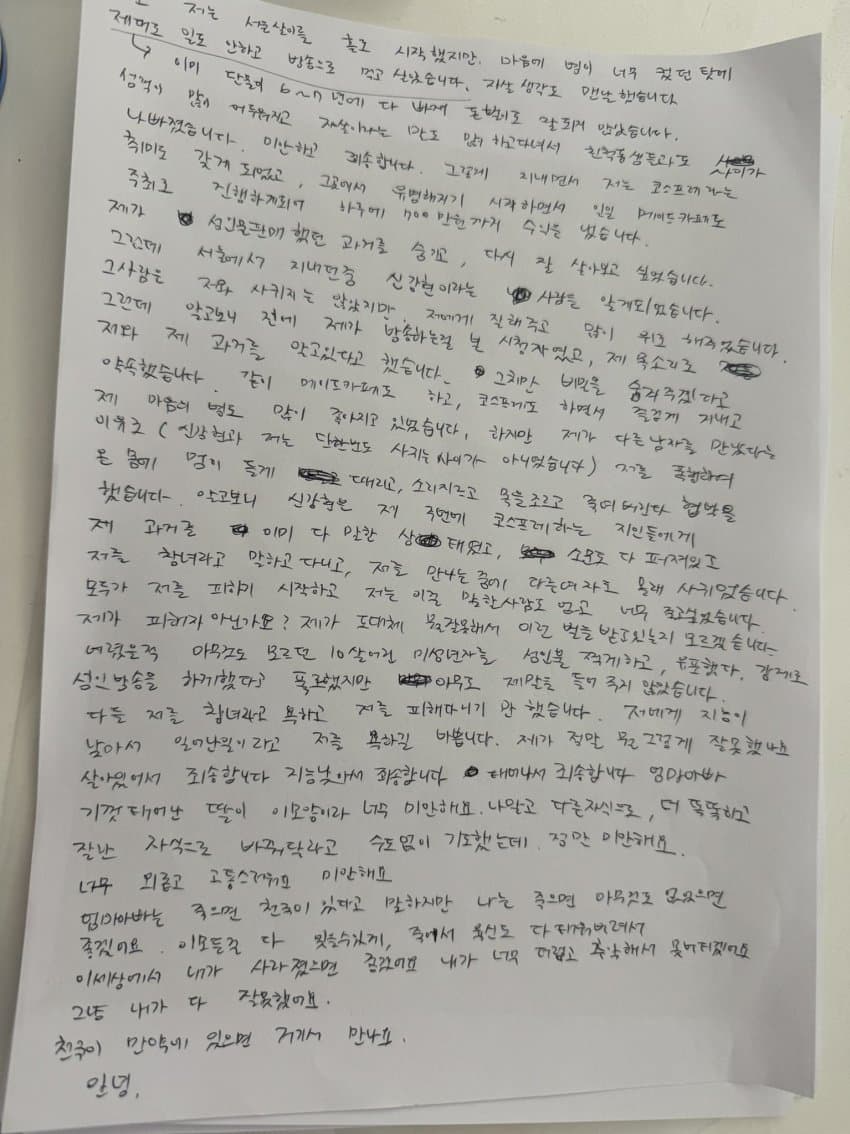 저는 서울살이를 홀로 시작했지만. 마음에 병이 너무 컸던 탓에
제대로 일도 안하고 방송으로 먹고 살았습니다. 자살 생각도 맨날 했습니다
이미 단톡에 6~7년에 다 빠게 돈벌이로 말되지 않았습니다.
성격이 많이 어두워지고 자살이라는 말도 많이 하고다녀서 친척동생들과도 사이가
나빠졌습니다. 미안하고 죄송합니다. 그렇게 지내면서 저는 코스프레라는
취미도 갖게 되었고, 그곳에서 유명해지기 시작하면서 일일 메이드카페도
주최로 진행하게되어 하루에 700만원까지 수익을 냈습니다.
제가 성인물판매했던 과거를 숨기고, 다시 잘 살아보고 싶었습니다.
그런데 서울에서 지내던중 신강현이라는 사람을 알게되었습니다.
그사람은 저와 사귀지는 않았지만, 저에게 잘해주고 많이 위로 해주었습니다.
그런데 알고보니 전에 제가 방송하는걸 본 시청자였고, 제 목소리로
저와 제 과거를 알고있다고 했습니다. 그치만 비밀을 숨겨주겠다고
약속했습니다. 같이 메이드카페도 하고, 코스프레도 하면서 즐겁게 지내고
제 마음의 병도 많이 좋아지고 있었습니다, 하지만 제가 다른남자를 만났다는
이유로 (신강현과 저는 단한번도 사귀는사이가 아니었습니다) 저를 폭행하여
온 몸에 멍이 들게 때리고, 소리지르고 목을조르고 죽여버린다 협박을
했습니다. 알고보니 신강현은 제 주변에 코스프레하는 지인들에게
제 과거를 이미 다 말한 상태였고, 소문도 다 퍼져있고
저를 창녀라고 말하고 다니고, 저를 만나는 중에 다른여자도 몰래 사귀었습니다
모두가 저를 피하기 시작하고 저는 이걸 말할사람도 없고 너무 죽고싶었습니다.
제가 피해자 아닌가요? 제가 도대체 뭘잘못해서 이런 벌을 받고있는지 모르겠습니다
어렸을적 아무것도 모르던 10살어린 미성년자를 성인물 찍게하고, 유포했다. 강제로
성인방송을 하게했다고 폭로했지만 아무도 제말을 들어 주지 않았습니다.
다들 저를 창녀라고 욕하고 저를 피해다니기만 했습니다. 저에게 지능이
낮아서 일어난일이라고 저를 욕하길 바쁩니다. 제가 정말 뭘 그렇게 잘못했나요
살아있어서 죄송합니다 지능낮아서 죄송합니다 태어나서 죄송합니다 엄마아빠
기껏 태어난 딸이 이모양이라 너무 미안해요. 나말고 다른자식으로, 더 똑똑하고
잘난 자식으로 바꿔달라고 수도없이 기도했는데. 정말 미안해요.
너무 외롭고 고통스러워요 미안해요
엄마아빠는 죽으면 천국이 있다고 말하지만 나는 죽으면 아무것도 없었으면
좋겠어요. 이모든걸 다 잊을수있게, 죽어서 육신도 다 태워버려서
이세상에서 내가 사라졌으면 좋겠어요 내가 너무 더럽고 추악해서 못버티겠어요
그냥 내가 다 잘못했어요.
천국이 만약에 있으면 거기서 만나요.
안녕.